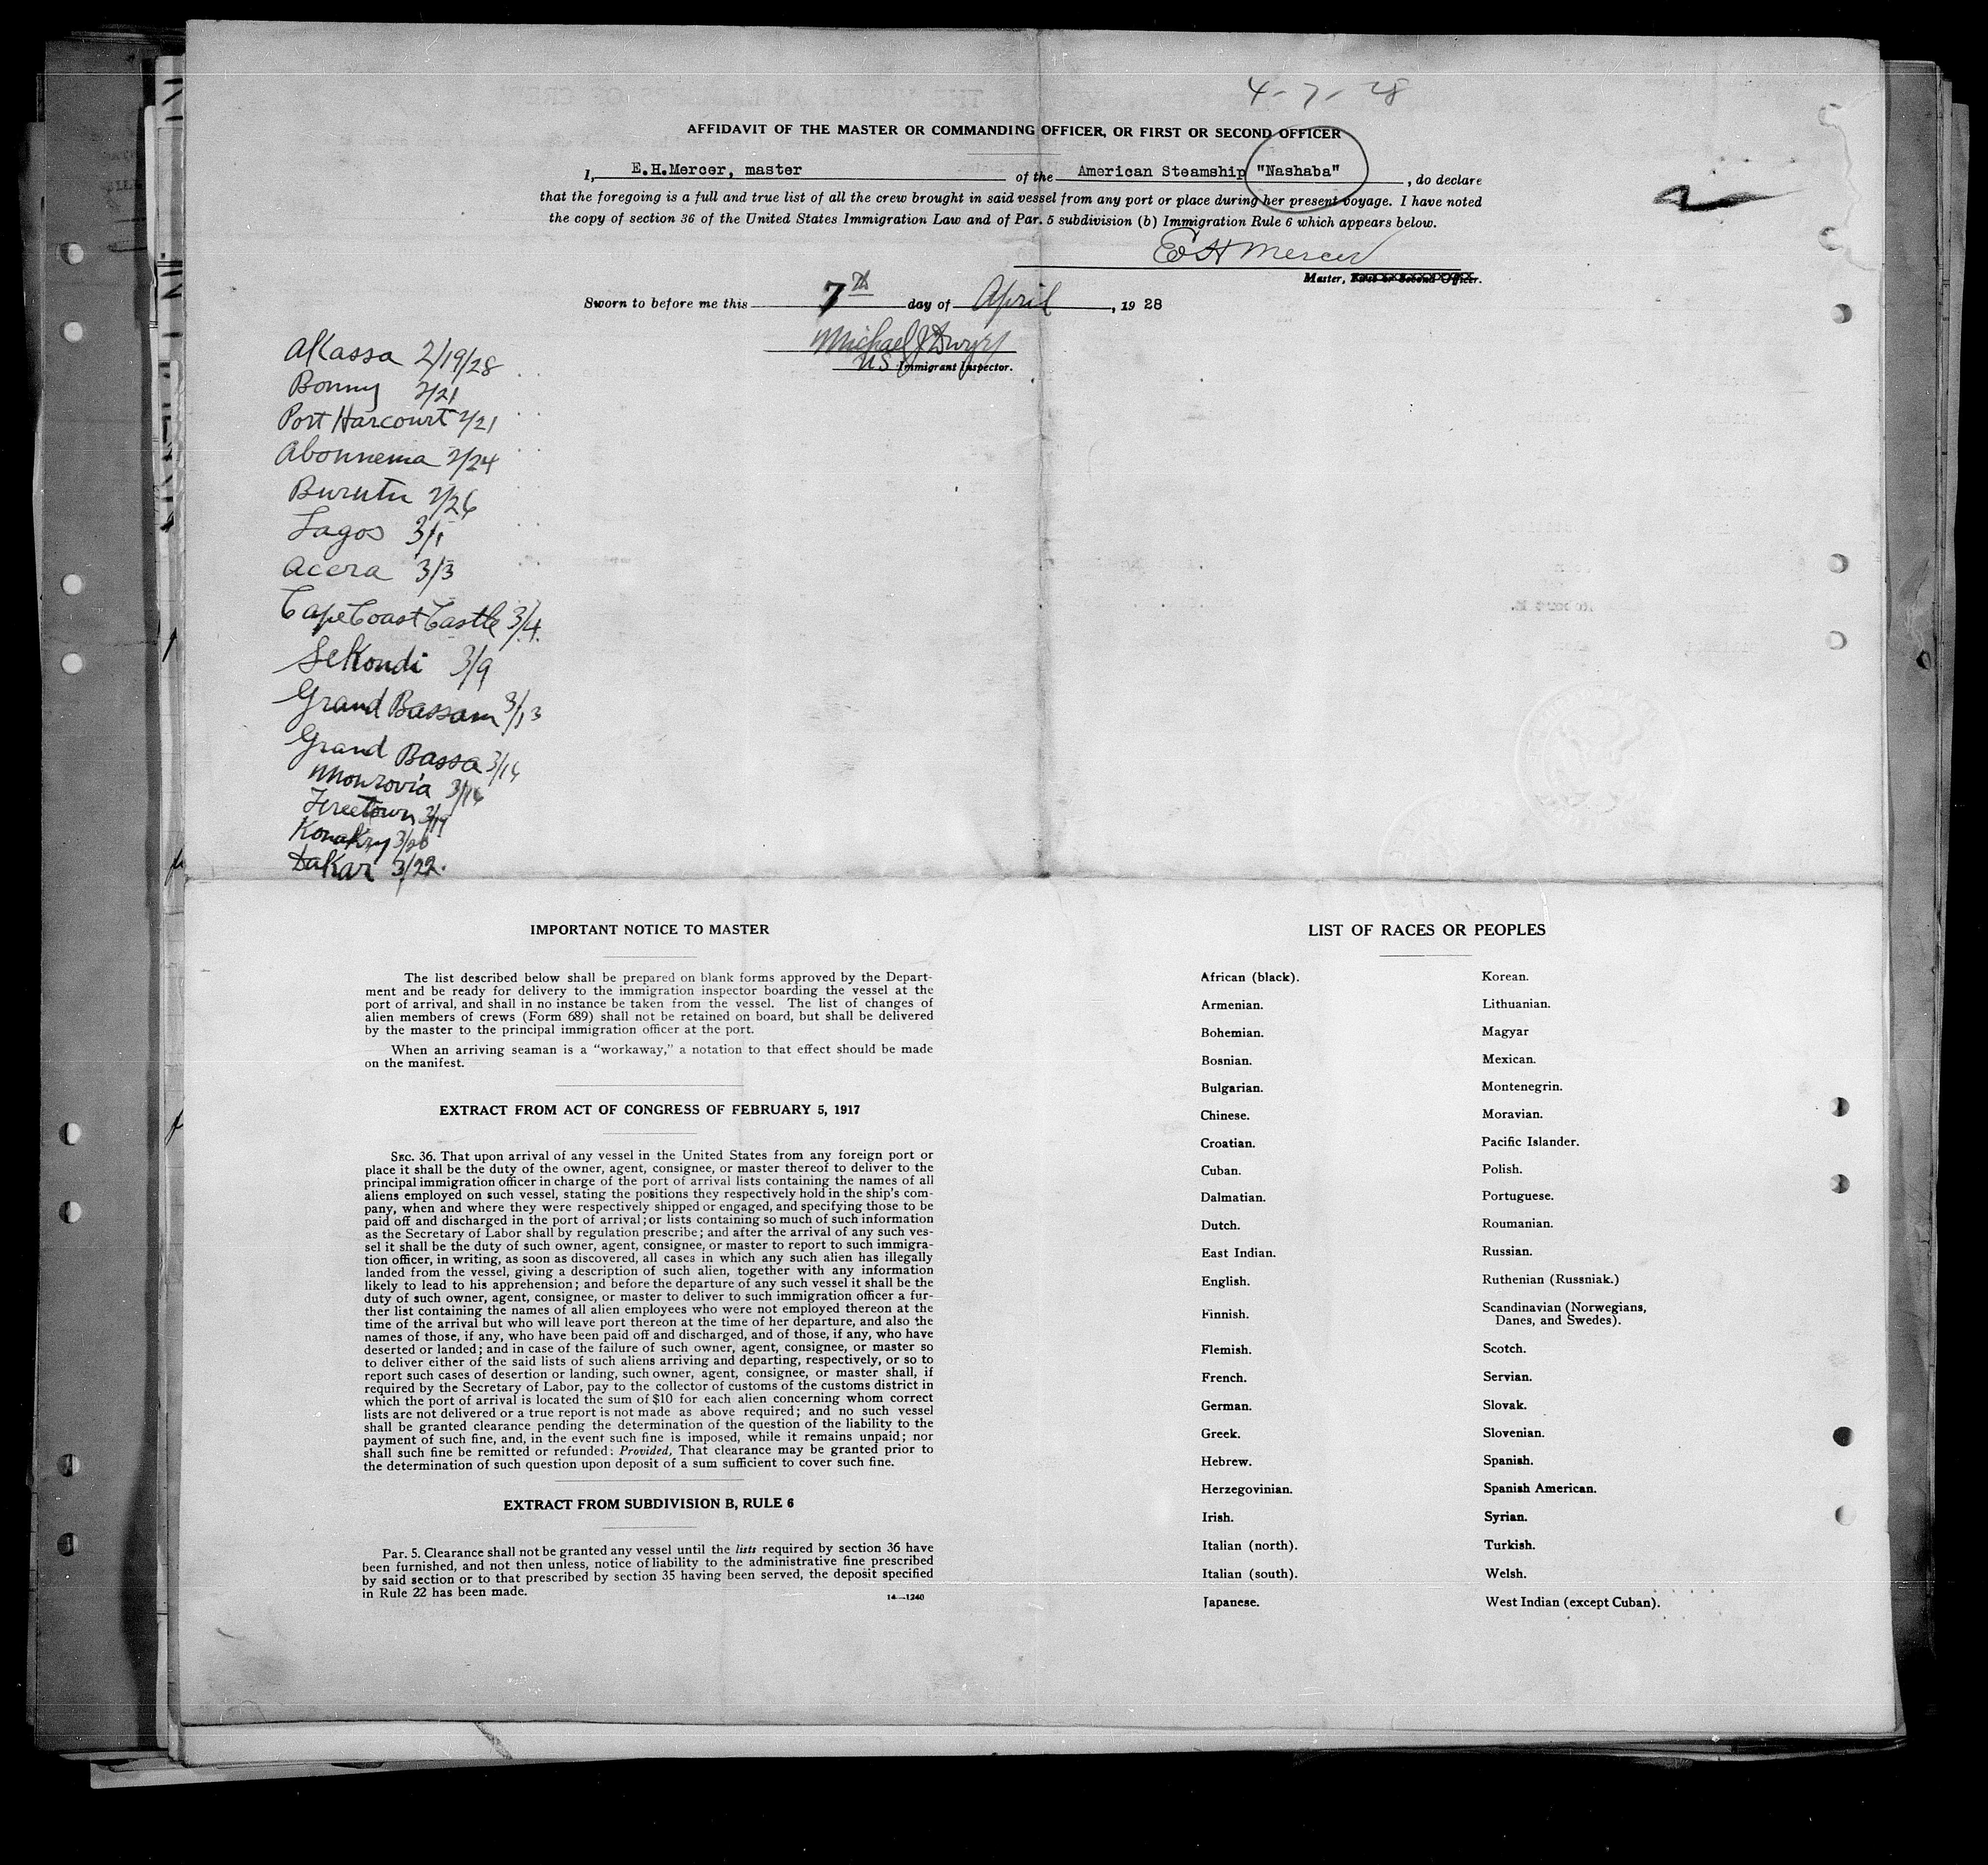 4-7-28
AFFIDAVIT OF THE MASTER OR COMMANDING OFFICER, OR FIRST OR SECOND OFFICER
I, E.H.Mercer, master of the American Steamship "Nashaba", do declare
that the foregoing is a full and true list of all the crew brought in said vessel from any port or place during her present voyage. I have noted
the copy of section 36 of the United States Immigration Law and of Par. 5 subdivision (b) Immigration Rule 6 which appears below.
E H Mercer
Master, First or Second Officer.
Sworn to before me this 7th day of April, 1928
Michael J Dwyer
US Immigrant Inspector.
Akassa 2/19/28
Bonny 2/21
Port Harcourt 2/21
Abonnema 2/24
Burutu 2/26
Lagos 3/1
Accra 3/3
Cape Coast Castle 3/4.
Sekondi 3/9
Grand Bassam 3/13
Grand Bassa 3/14
Monrovia 3/16
Freetown 3/19
Konakry 3/20
Dakar 3/22.
IMPORTANT NOTICE TO MASTER
The list described below shall be prepared on blank forms approved by the Depart-
ment and be ready for delivery to the immigration inspector boarding the vessel at the
port of arrival, and shall in no instance be taken from the vessel. The list of changes of
alien members of crews (Form 689) shall not be retained on board, but shall be delivered
by the master to the principal immigration officer at the port.
When an arriving seaman is a "workaway," a notation to that effect should be made
on the manifest.
EXTRACT FROM ACT OF CONGRESS OF FEBRUARY 5, 1917
SEC. 36. That upon arrival of any vessel in the United States from any foreign port or
place it shall be the duty of the owner, agent, consignee, or master thereof to deliver to the
principal immigration officer in charge of the port of arrival lists containing the names of all
aliens employed on such vessel, stating the positions they respectively hold in the ship's com-
pany, when and where they were respectively shipped or engaged, and specifying those to be
paid off and discharged in the port of arrival; or lists containing so much of such information
as the Secretary of Labor shall by regulation prescribe; and after the arrival of any such ves-
sel it shall be the duty of such owner, agent, consignee, or master to report to such immigra-
tion officer, in writing, as soon as discovered, all cases in which any such alien has illegally
landed from the vessel, giving a description of such alien, together with any information
likely to lead to his apprehension; and before the departure of any such vessel it shall be the
duty of such owner, agent, consignee, or master to deliver to such immigration officer a fur-
ther list containing the names of all alien employees who were not employed thereon at the
time of the arrival but who will leave port thereon at the time of her departure, and also the
names of those, if any, who have been paid off and discharged, and of those, if any, who have
deserted or landed; and in case of the failure of such owner, agent, consignee, or master so
to deliver either of the said lists of such aliens arriving and departing, respectively, or so to
report such cases of desertion or landing, such owner, agent, consignee, or master shall, if
required by the Secretary of Labor, pay to the collector of customs of the customs district in
which the port of arrival is located the sum of $10 for each alien concerning whom correct
lists are not delivered or a true report is not made as above required; and no such vessel
shall be granted clearance pending the determination of the question of the liability to the
payment of such fine, and, in the event such fine is imposed, while it remains unpaid; nor
shall such fine be remitted or refunded: Provided, That clearance may be granted prior to
the determination of such question upon deposit of a sum sufficient to cover such fine.
EXTRACT FROM SUBDIVISION B, RULE 6
Par. 5. Clearance shall not be granted any vessel until the lists required by section 36 have
been furnished, and not then unless, notice of liability to the administrative fine prescribed
by said section or to that prescribed by section 35 having been served, the deposit specified
in Rule 22 has been made.
14—1240
LIST OF RACES OR PEOPLES
African (black).
Armenian.
Bohemian.
Bosnian.
Bulgarian.
Chinese.
Croatian.
Cuban.
Dalmatian.
Dutch.
East Indian.
English.
Finnish.
Flemish.
French.
German.
Greek.
Hebrew.
Herzegovinian.
Irish.
Italian (north).
Italian (south).
Japanese.
Korean.
Lithuanian.
Magyar
Mexican.
Montenegrin.
Moravian.
Pacific Islander.
Polish.
Portuguese.
Roumanian.
Russian.
Ruthenian (Russniak.)
Scandinavian (Norwegians,
Danes, and Swedes).
Scotch.
Servian.
Slovak.
Slovenian.
Spanish.
Spanish American.
Syrian.
Turkish.
Welsh.
West Indian (except Cuban).